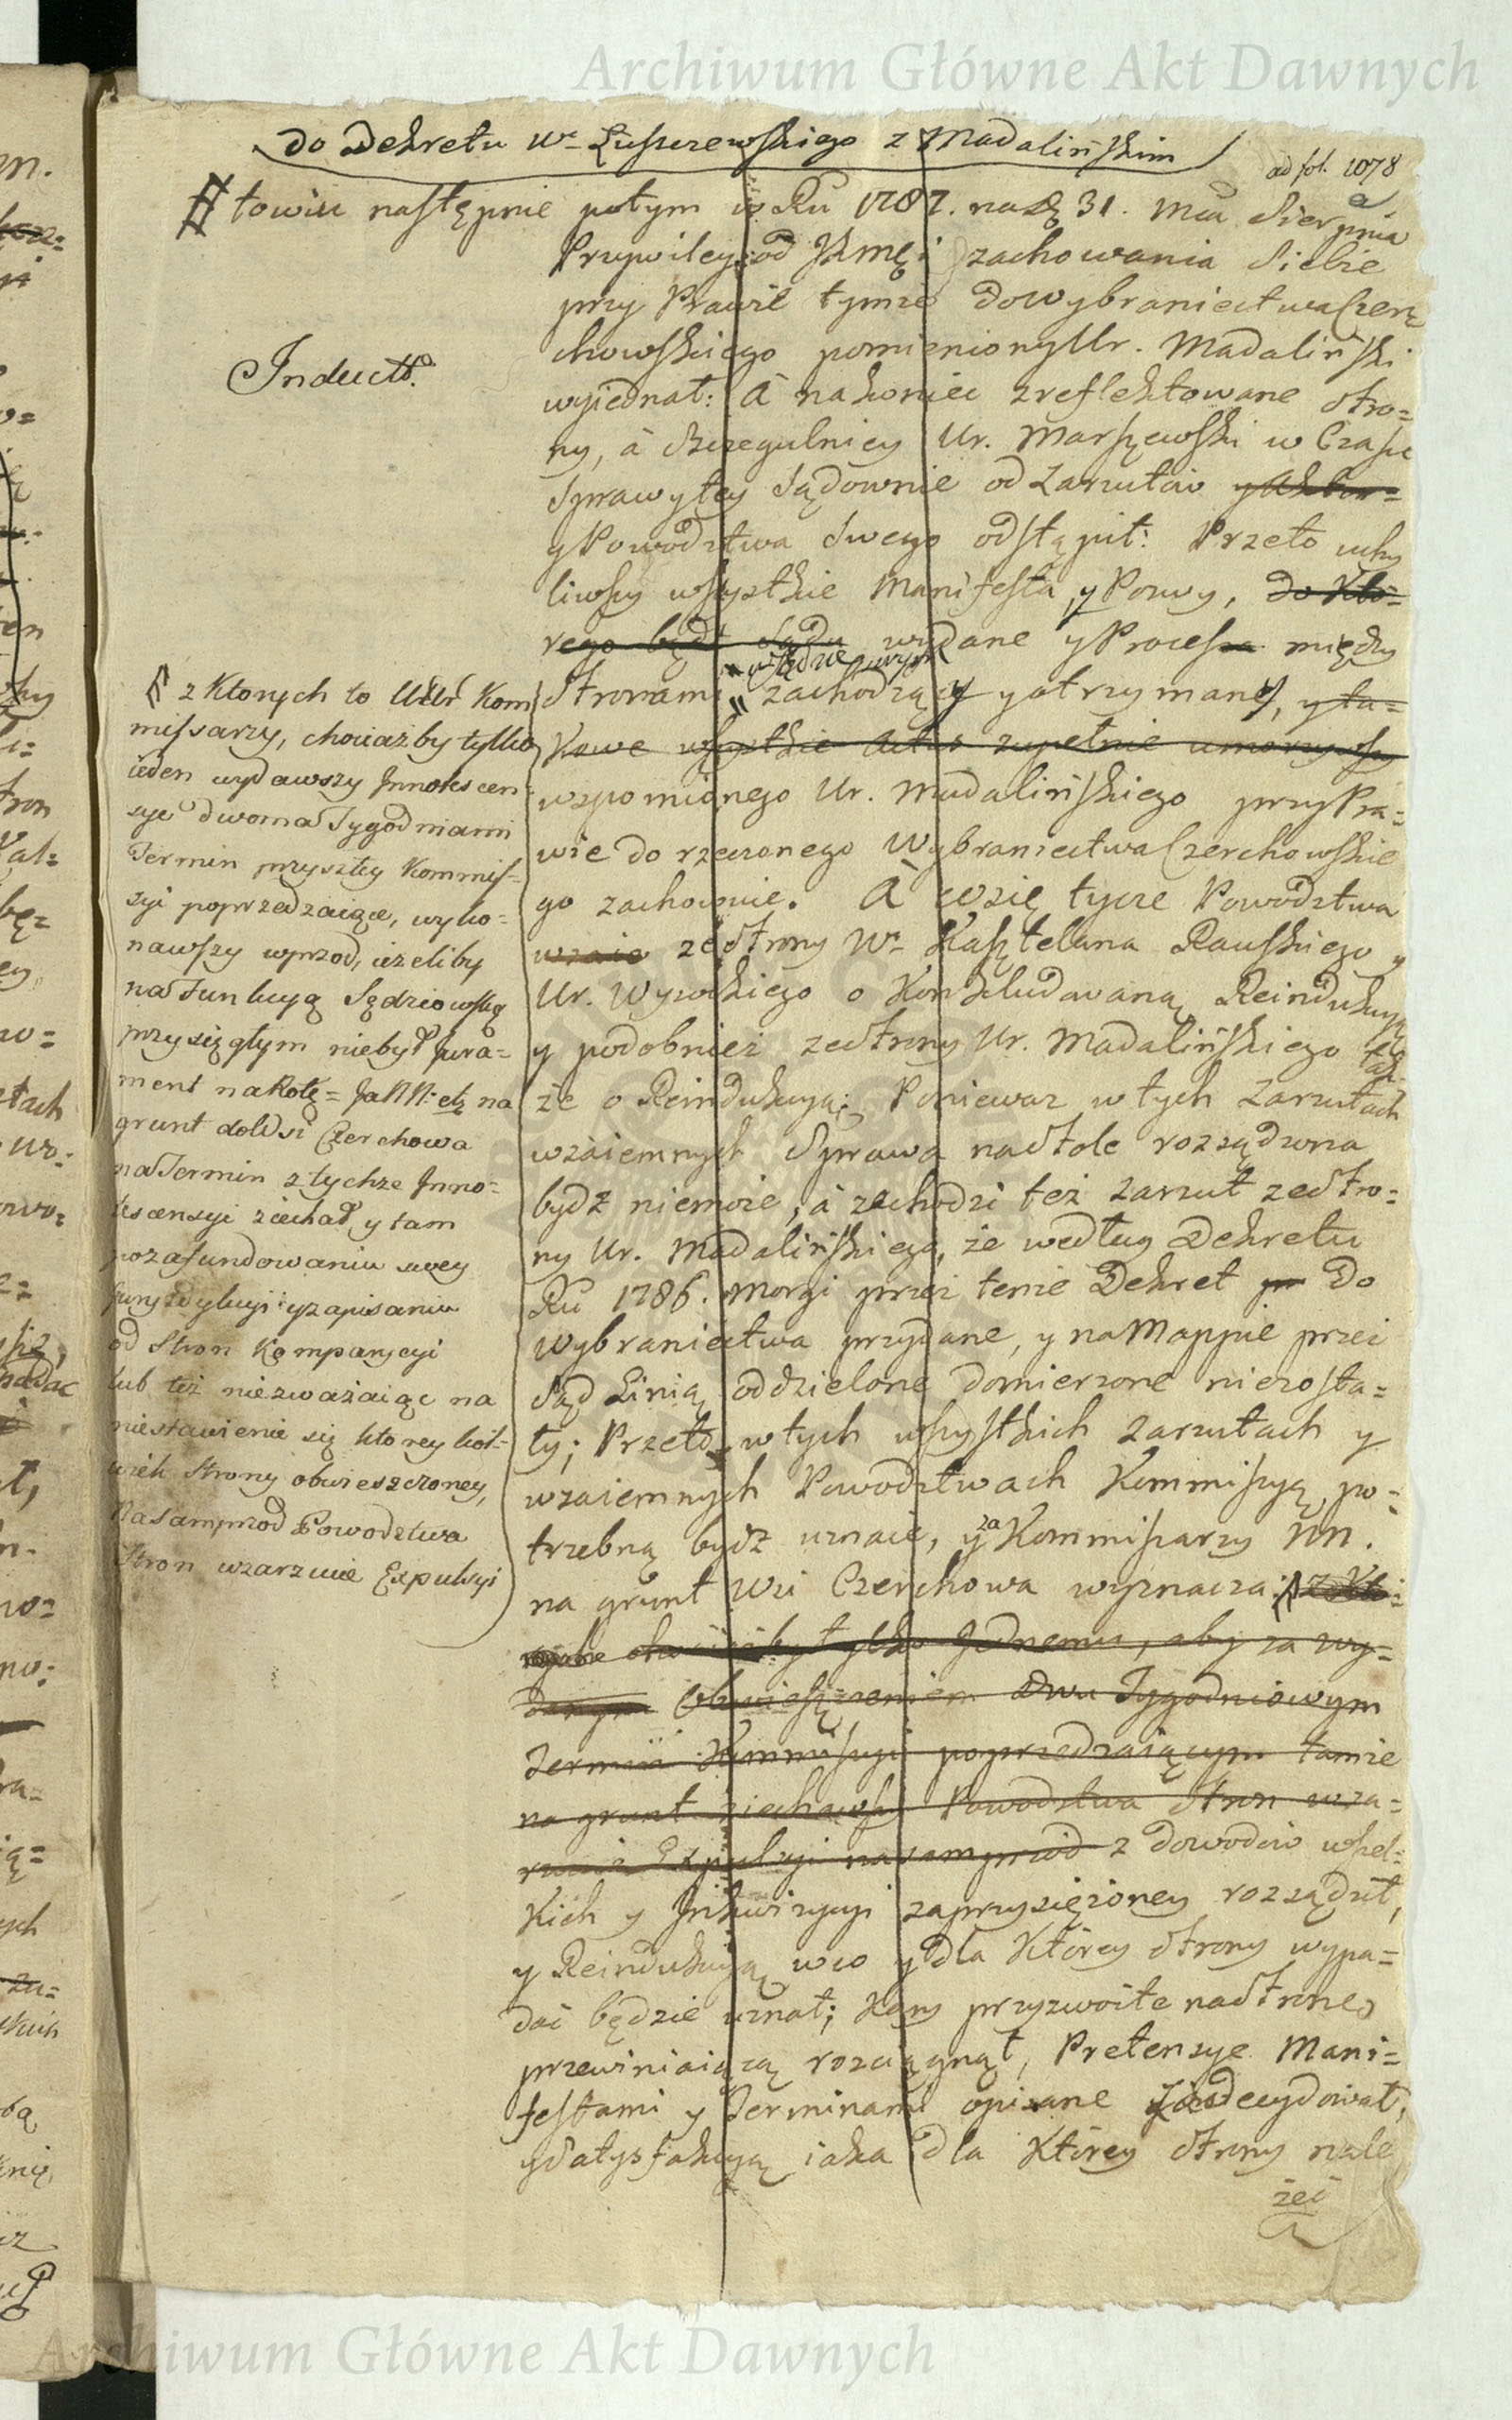 Archiwum Główne Akt Dawnych
do Dekretu Wo Łuszczewskiego z Madalińskim
ad fol. 1078
towiu następnie potym w Ru 1787. na dę 31. Mca Sierpnia
Prziwiley od JKMci zachowania Siebie
przy Prawie tymże do wybraniectwa Czer
chowskiego pomieniony Ur. Madaliński
wyiednał: à nakoniec zreflektowane Stro=
ny, à szczegulniey Ur. Marszewski w Czasie
Sprawy tey Sądownie od Zarzutów
y Powodztwa Swego odstąpił: Przeto uchy
liwszy wszystkie Manifesta, y Pozwy, do Któ=
rego bądź Sądu wydane y Process między
w Sądzie
Stronami zachodzący y otrzymany, y ta=
kowe wszystkie Acta zupełnie umorzywszy
wspomionego Ur. Madalińskiego przy Pra=
wie do rzeczonego Wybraniectwa Czerchowskie
go zachowuie. A co się tycze Powodztwa
ze Strony Wo Kasztelana Rawskiego y
Ur. Wysockiego o Kondludowaną Reindukcyą
y podobnież ze Strony Ur. Madalińskiego tak
że o Reindukcyą; Ponieważ w tych Zarzutach
wzaiemnych Sprawa na Stole rozsądzona
bydź niemoże, à zachodzi też zarzut ze Stro=
ny Ur. Madalińskiego, że według Dekretu
Ru 1786. Morgi przez tenże Dekret do
Wybraniectwa przydane, y na Mappie przez
Sąd Linią oddzielone domierzone niezosta=
ły; Przeto w tych wszystkich zarzutach y
wzaiemnych Powodztwach Kommissyą po=
trzebną bydź uznaie, y za Kommissarzy NN.
na grunt Wsi Czerchowa wyznacza:
chociażby tylko Jednemu, aby za wy=
danym Obwieszczeniem dwu Tygodniowym
Termin Kommissyi poprzedzaiącym tamże
na grunt ziechawszy Powodztwa Stron wza=
rzucie Expulsyi nasamprzód z dowodów wszel=
kich y Inkwizycyi zaprzysiężoney rozsądził,
y Reindukcyą w co y dla Którey Strony wypa=
dać będzie uznał; Kary przyzwoite na Stronę
przewiniaiącą rozciągnął, Pretensye Mani=
festami y Terminami opisane zadecydował,
y Satysfakcyą iaka dla Którey Strony nale
żeć
Inducto
z Ktorych to Urodr Kom
missarzy, chociażby tylko
ieden wydawszy Innotescen
sye dwoma Tygodniami
Termin przyszłey Kommis=
syi poprzedzaiące, wyko=
nawszy wprzod, ieżeliby
na Funkcyą Sędziowską
przysięgłym niebył Jura=
ment na Rotę = Ja NN: etz na
grunt do Wsi Czerchowa
na Termin z tychże Inno=
tescensyi ziechał, y tam
po zafundowaniu swey
Juryzdykcyi y zapisaniu
od Stron Kompanycyi
lub też niezważaiąc na
niestawienie się ktorey kol=
wiek Strony obwieszczoney,
Nasamprzod Powodztwa
Stron wzarzucie Expulsyi
Archiwum Główne Akt Dawnych